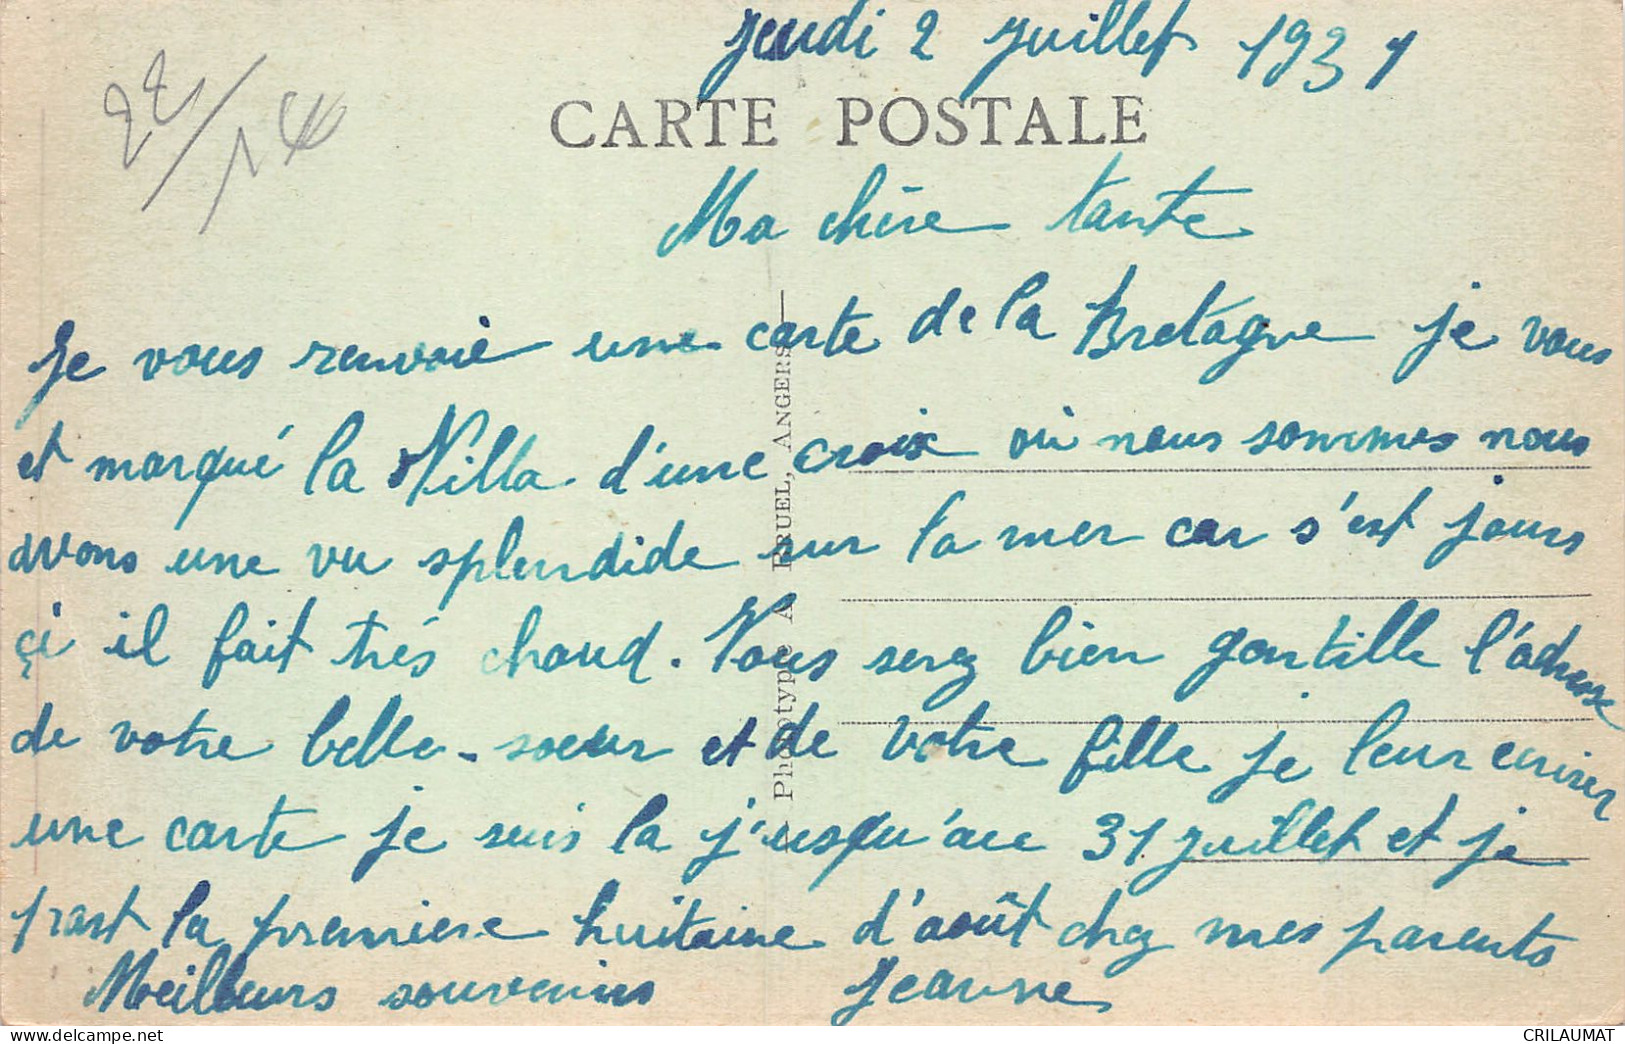 Jeudi 2 Juillet 1931
CARTE POSTALE
Ma chère tante
Je vous renvoie une carte de la Bretagne je vous
et marqué la Villa d'une croix où nous sommes nous
avons une vu splendide sur la mer car s'est jours
çi il fait très chaud. Vous serez bien gentille l'adresse
de votre belle-soeur et de votre fille je leur ecrirer
une carte je suis la j'usqu'au 31 juillet et je
part la premiere huitaine d'août chez mes parents
Meilleurs souvenirs Jeanne
Phototype A. BRUEL, ANGERS
CRILAUMAT